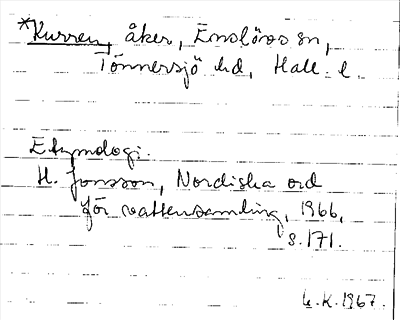 *Kurren, åker, Enslövs sn,
Tönnersjö hd, Hall. l.
Etymologi:
H. Jonsson, Nordiska ord
för vattensamling, 1966,
s. 171.
K. 1967.